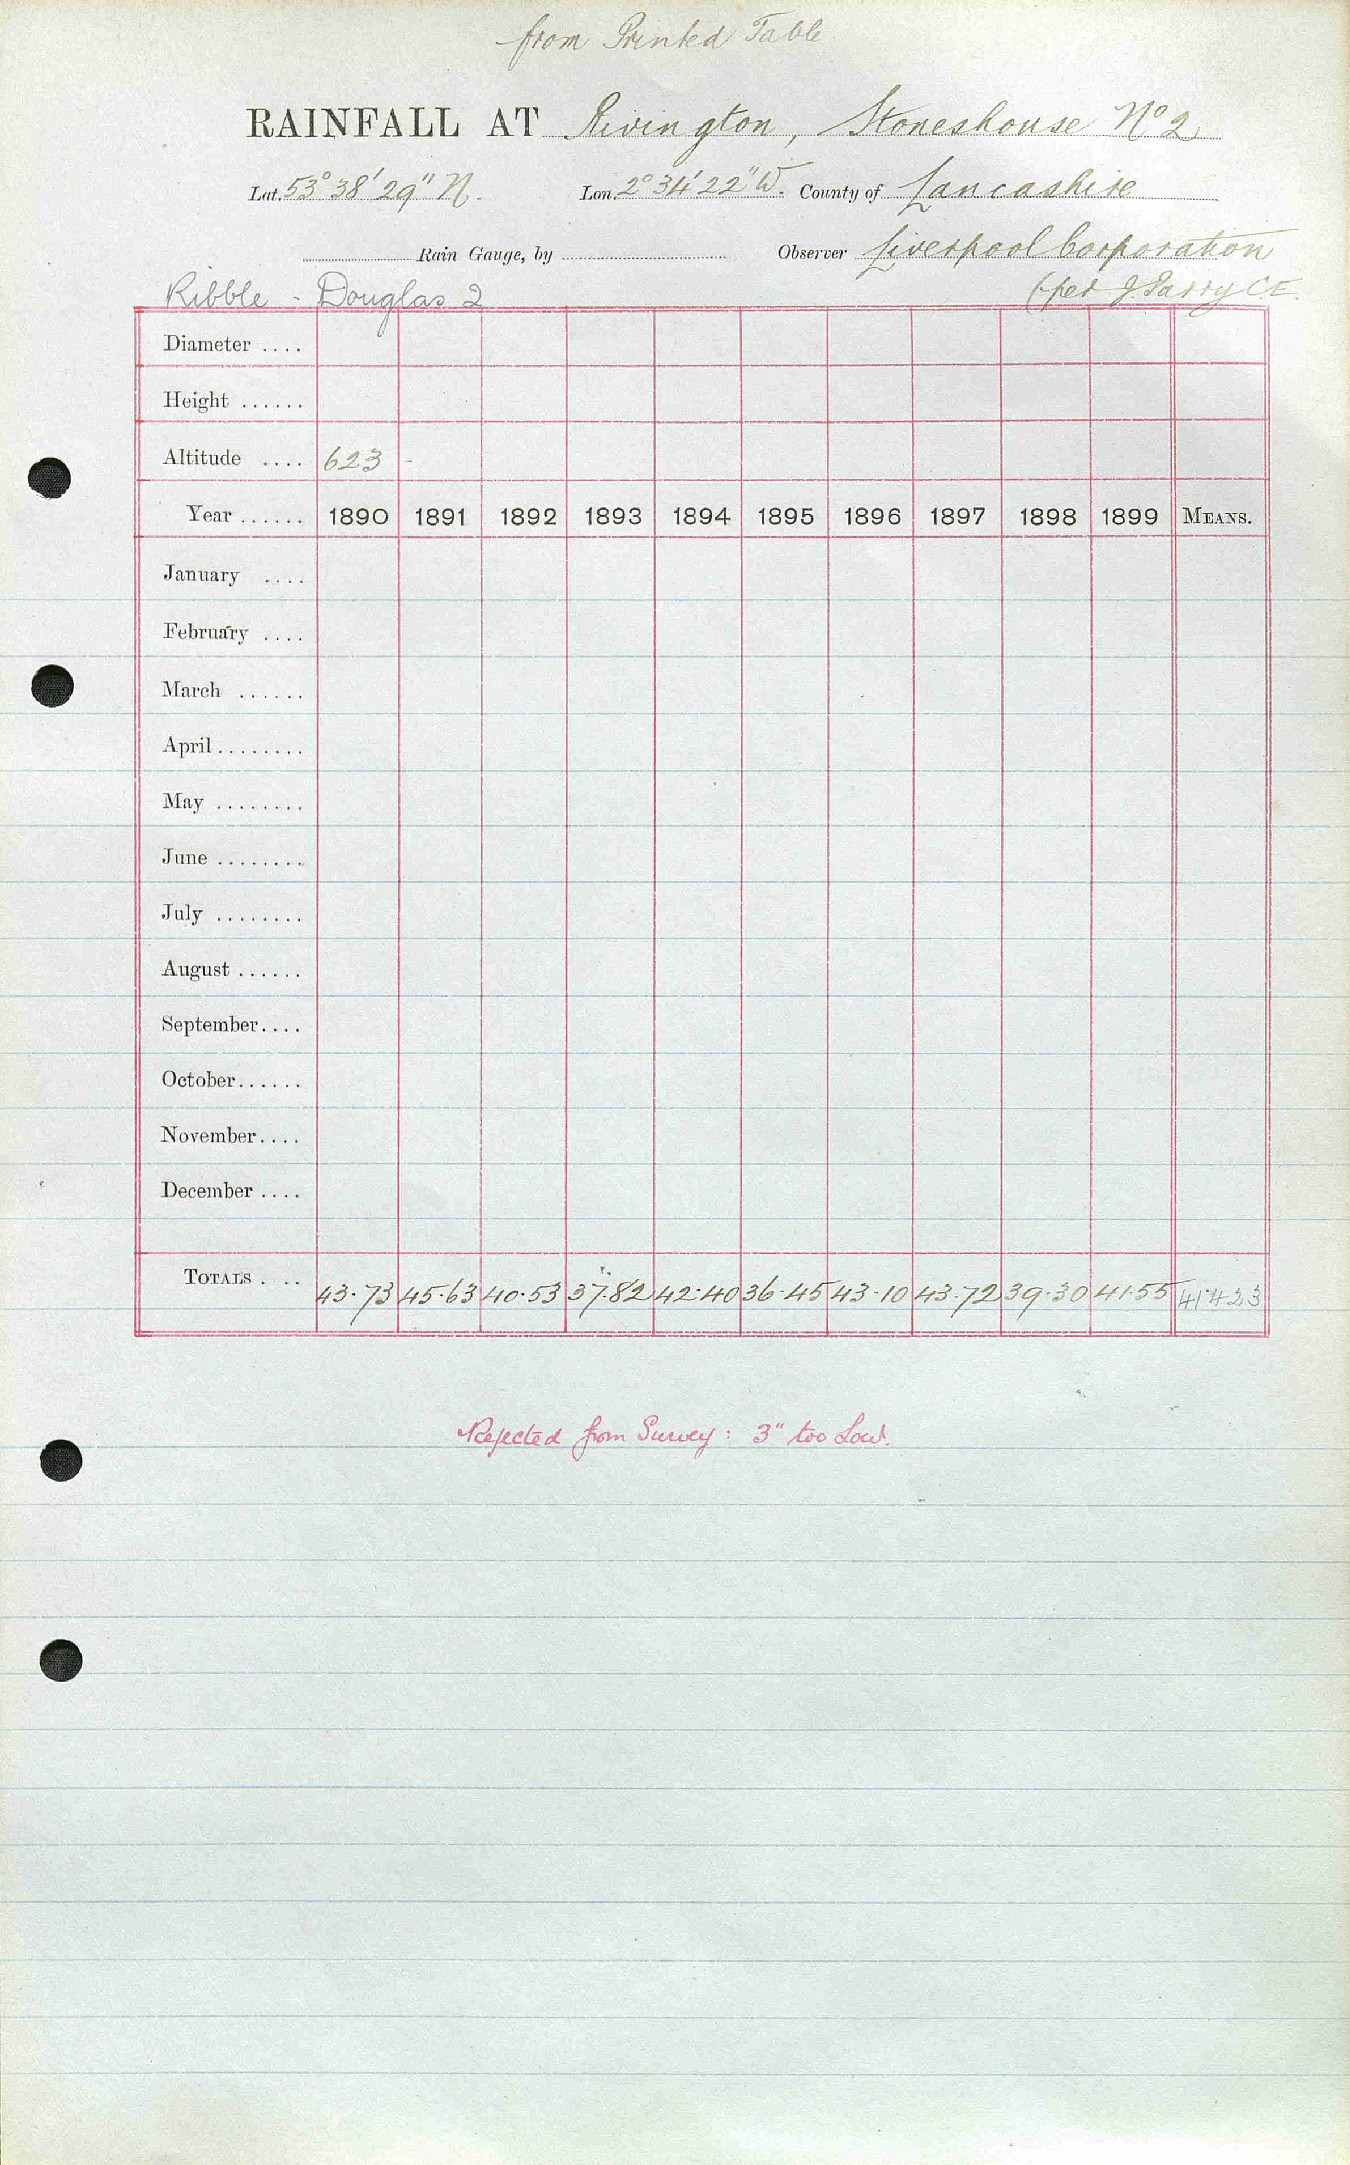 from Printed Table
RAINFALL AT Rivington, Stoneshouse No 2,
Lat. 53° 38' 29" N. Lon. 2° 34' 22" W. County of Lancashire
Rain Gauge, by Observer Liverpool Corporation
Ribble - Douglas 2 (per J Parry C.E.
Diameter ....
Height ......
Altitude .... 623 -
Year ...... 1890 1891 1892 1893 1894 1895 1896 1897 1898 1899 MEANS.
January ....
February ....
March ......
April ........
May ........
June ........
July ........
August ......
September ....
October ......
November ....
December ....
TOTALS .... 43.73 45.63 40.53 37.82 42.40 36.45 43.10 43.72 39.30 41.55 41.423
Rejected from Survey: 3" too Low.